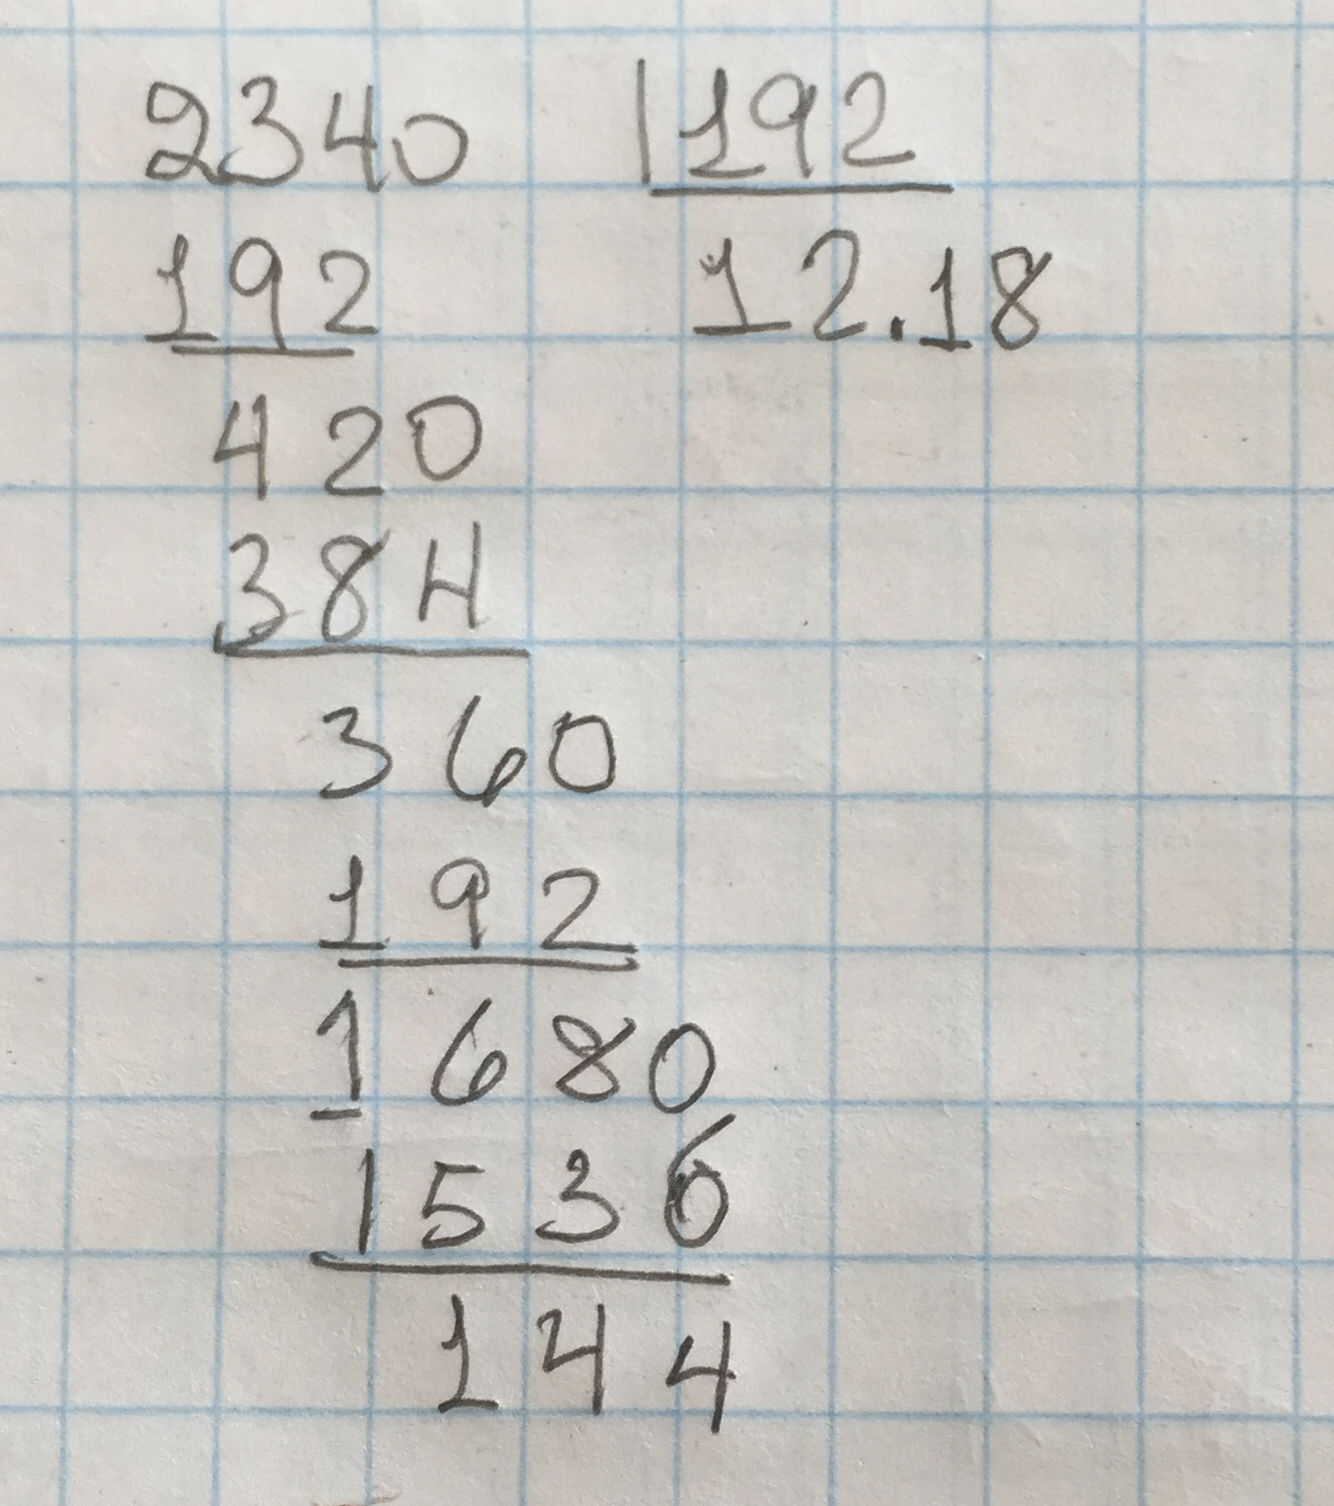 2340 |192
192 12.18
420
384
360
192
1680
1536
144